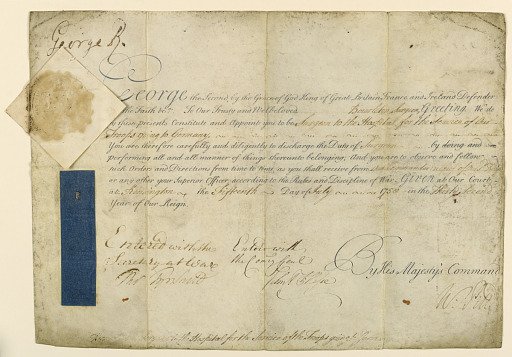 George R.
George the Second, by the Grace of God King of Great Britain France and Ireland Defender
the Faith &c. To Our Trusty and Welbeloved Surgeon, Greeting. We do
by these Presents Constitute and Appoint you to be Surgeon to the Hospital for the Service of Our
Troops going to Germany
You are therefore carefully and diligently to discharge the Duty of Surgeon by doing and
performing all and all manner of things thereunto belonging. And you are to observe and follow
such Orders and Directions from time to time, as you shall receive from
or any other your Superior Officer, according to the Rules and Discipline of War. Given at Our Court
at Kensington the Fifteenth Day of July 1758 in the Thirty Second
Year of Our Reign.
Entered with the
Secretary at War
Entered with
the Comry Genl
By His Majesty's Command
Hospital for the Service of the Troops going to Germany